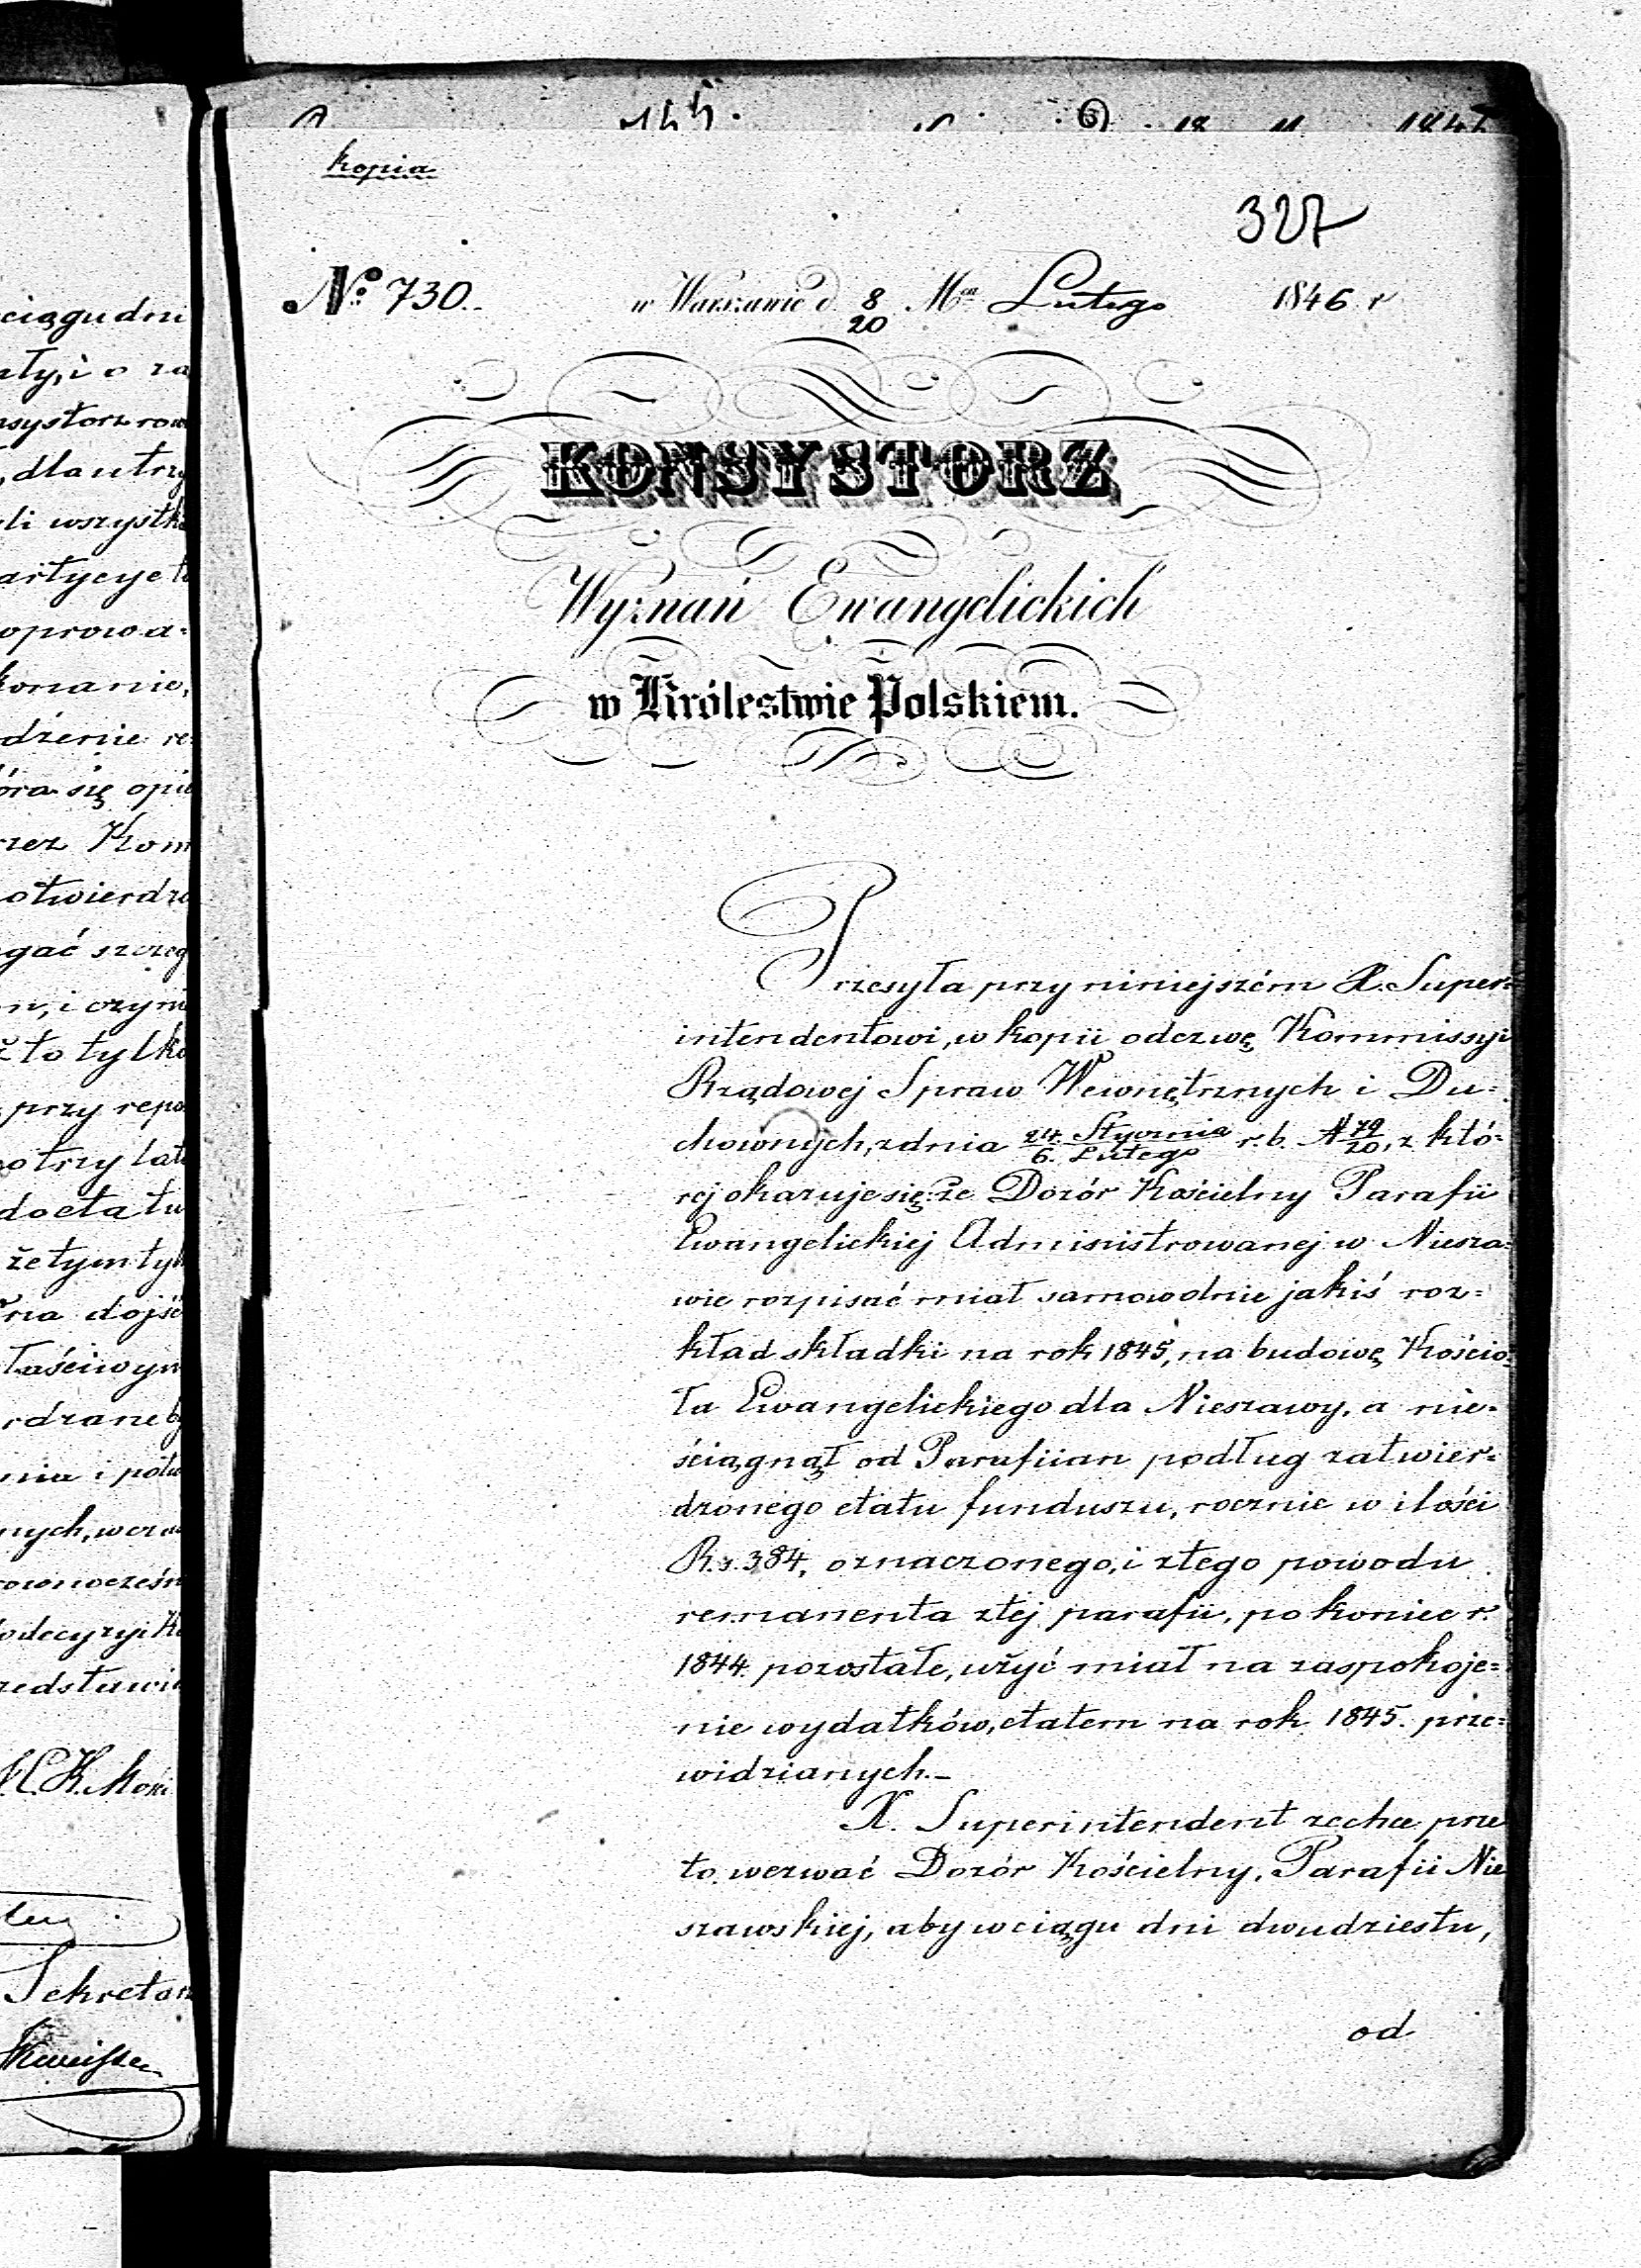 kopia
327
№ 730.
w Warszawie d. 8/20 Mca Lutego 1846 r
KONSYSTORZ
Wyznań Ewangelickich
w Królestwie Polskiem.
Przesyła przy niniejszém X. Super=
intendentowi, w kopii odezwę Kommissyi
Rządowej Spraw Wewnętrznych i Du=
chownych, z dnia 24. Stycznia/6. Lutego r. b. № 79/20, z któ=
rej okazuje się: że Dozór Kościelny Parafii
Ewangelickiej Administrowanej w Niesza=
wie rozpisać miał samowolnie jakiś roz=
kład składki na rok 1845, na budowę Kościo=
ła Ewangelickiego dla Nieszawy, a nie=
ściągnął od Parafiian podług zatwier=
dzonego etatu funduszu, rocznie w ilości
R.s. 384, oznaczonego, i z tego powodu
remanenta z tej parafii, po koniec r.
1844. pozostałe, użyć miał na zaspokoje=
nie wydatków, etatem na rok 1845. prze=
widzianych.—
X. Superintendent zechce prze
to wezwać Dozór Kościelny, Parafii Nie
szawskiej, aby w ciągu dni dwudziestu,
od
ciągu dni
dla utrzy
li wszystk
oprowa=
konanie,
się opie
otwierdza
i czyni
to tylko
przy repa
trzy lata
że tym tyl
na dojść
Sekretarz